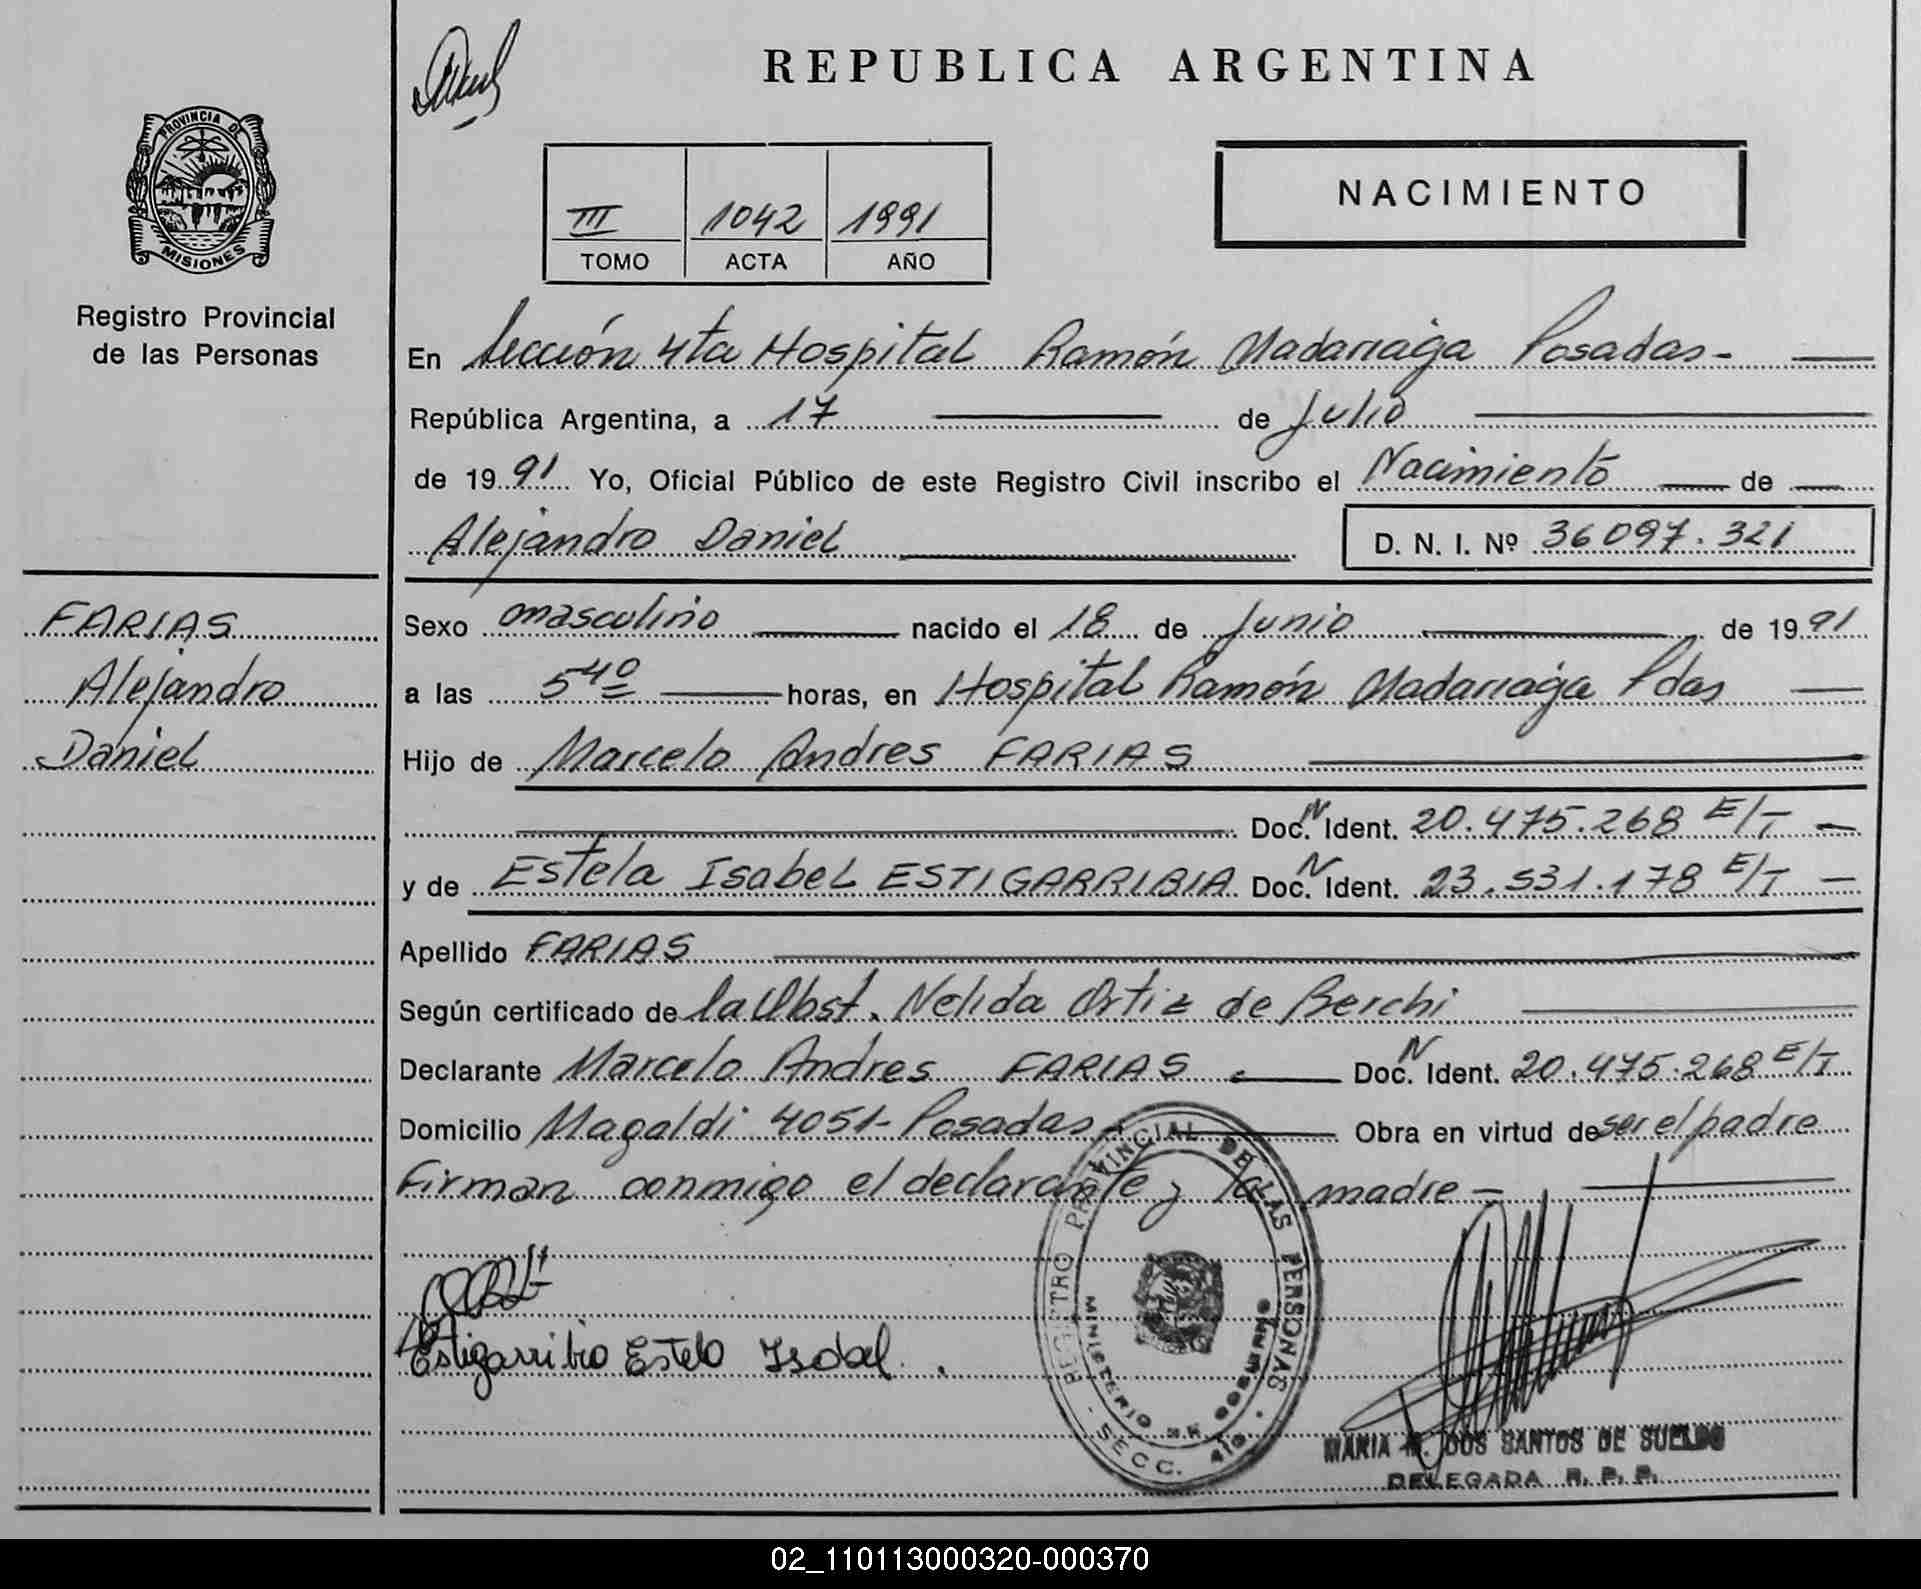 REPUBLICA ARGENTINA
PROVINCIA DE
MISIONES
Registro Provincial
de las Personas
III 1042 1991
TOMO ACTA AÑO
NACIMIENTO
En Sección 4ta Hospital Ramón Madariaga Posadas-
República Argentina, a 17 de Julio
de 1991 Yo, Oficial Público de este Registro Civil inscribo el Nacimiento de
Alejandro Daniel D. N. I. Nº 36097.321
FARIAS
Alejandro
Daniel
Sexo masculino nacido el 18 de Junio de 1991
a las 5 40 horas, en Hospital Ramón Madariaga Pdas
Hijo de Marcelo Andres FARIAS
Doc. N Ident. 20.475.268 E/T
y de Estela Isabel ESTIGARRIBIA Doc. N Ident. 23.531.178 E/T
Apellido FARIAS
Según certificado de la Obst. Nelida Ortiz de Berchi
Declarante Marcelo Andres FARIAS Doc. N Ident. 20.475.268 E/T
Domicilio Magaldi 4051- Posadas- Obra en virtud de ser el padre
Firman conmigo el declarante y la madre-
Estigarribia Estela Isabel.
REGISTRO PROVINCIAL DE LAS PERSONAS
MINISTERIO DE GOBIERNO
SECC. 4ta
MARIA DOS SANTOS DE SUELDO
DELEGADA R. P. P.
02_110113000320-000370